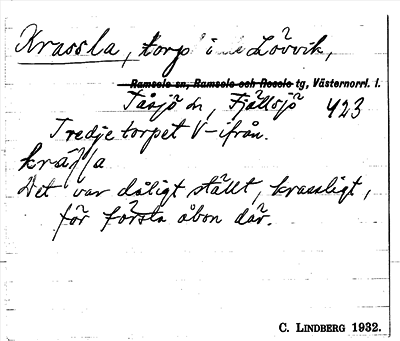 Krassla, torp i Lövvik,
Ramsele sn, Ramsele och Resele tg, Västernorrl. l.
Tåsjö sn, Fjällsjö 423
Tredje torpet V-ifrån.
Det var dåligt ställt, krassligt,
för första åbon där.
C. LINDBERG 1932.